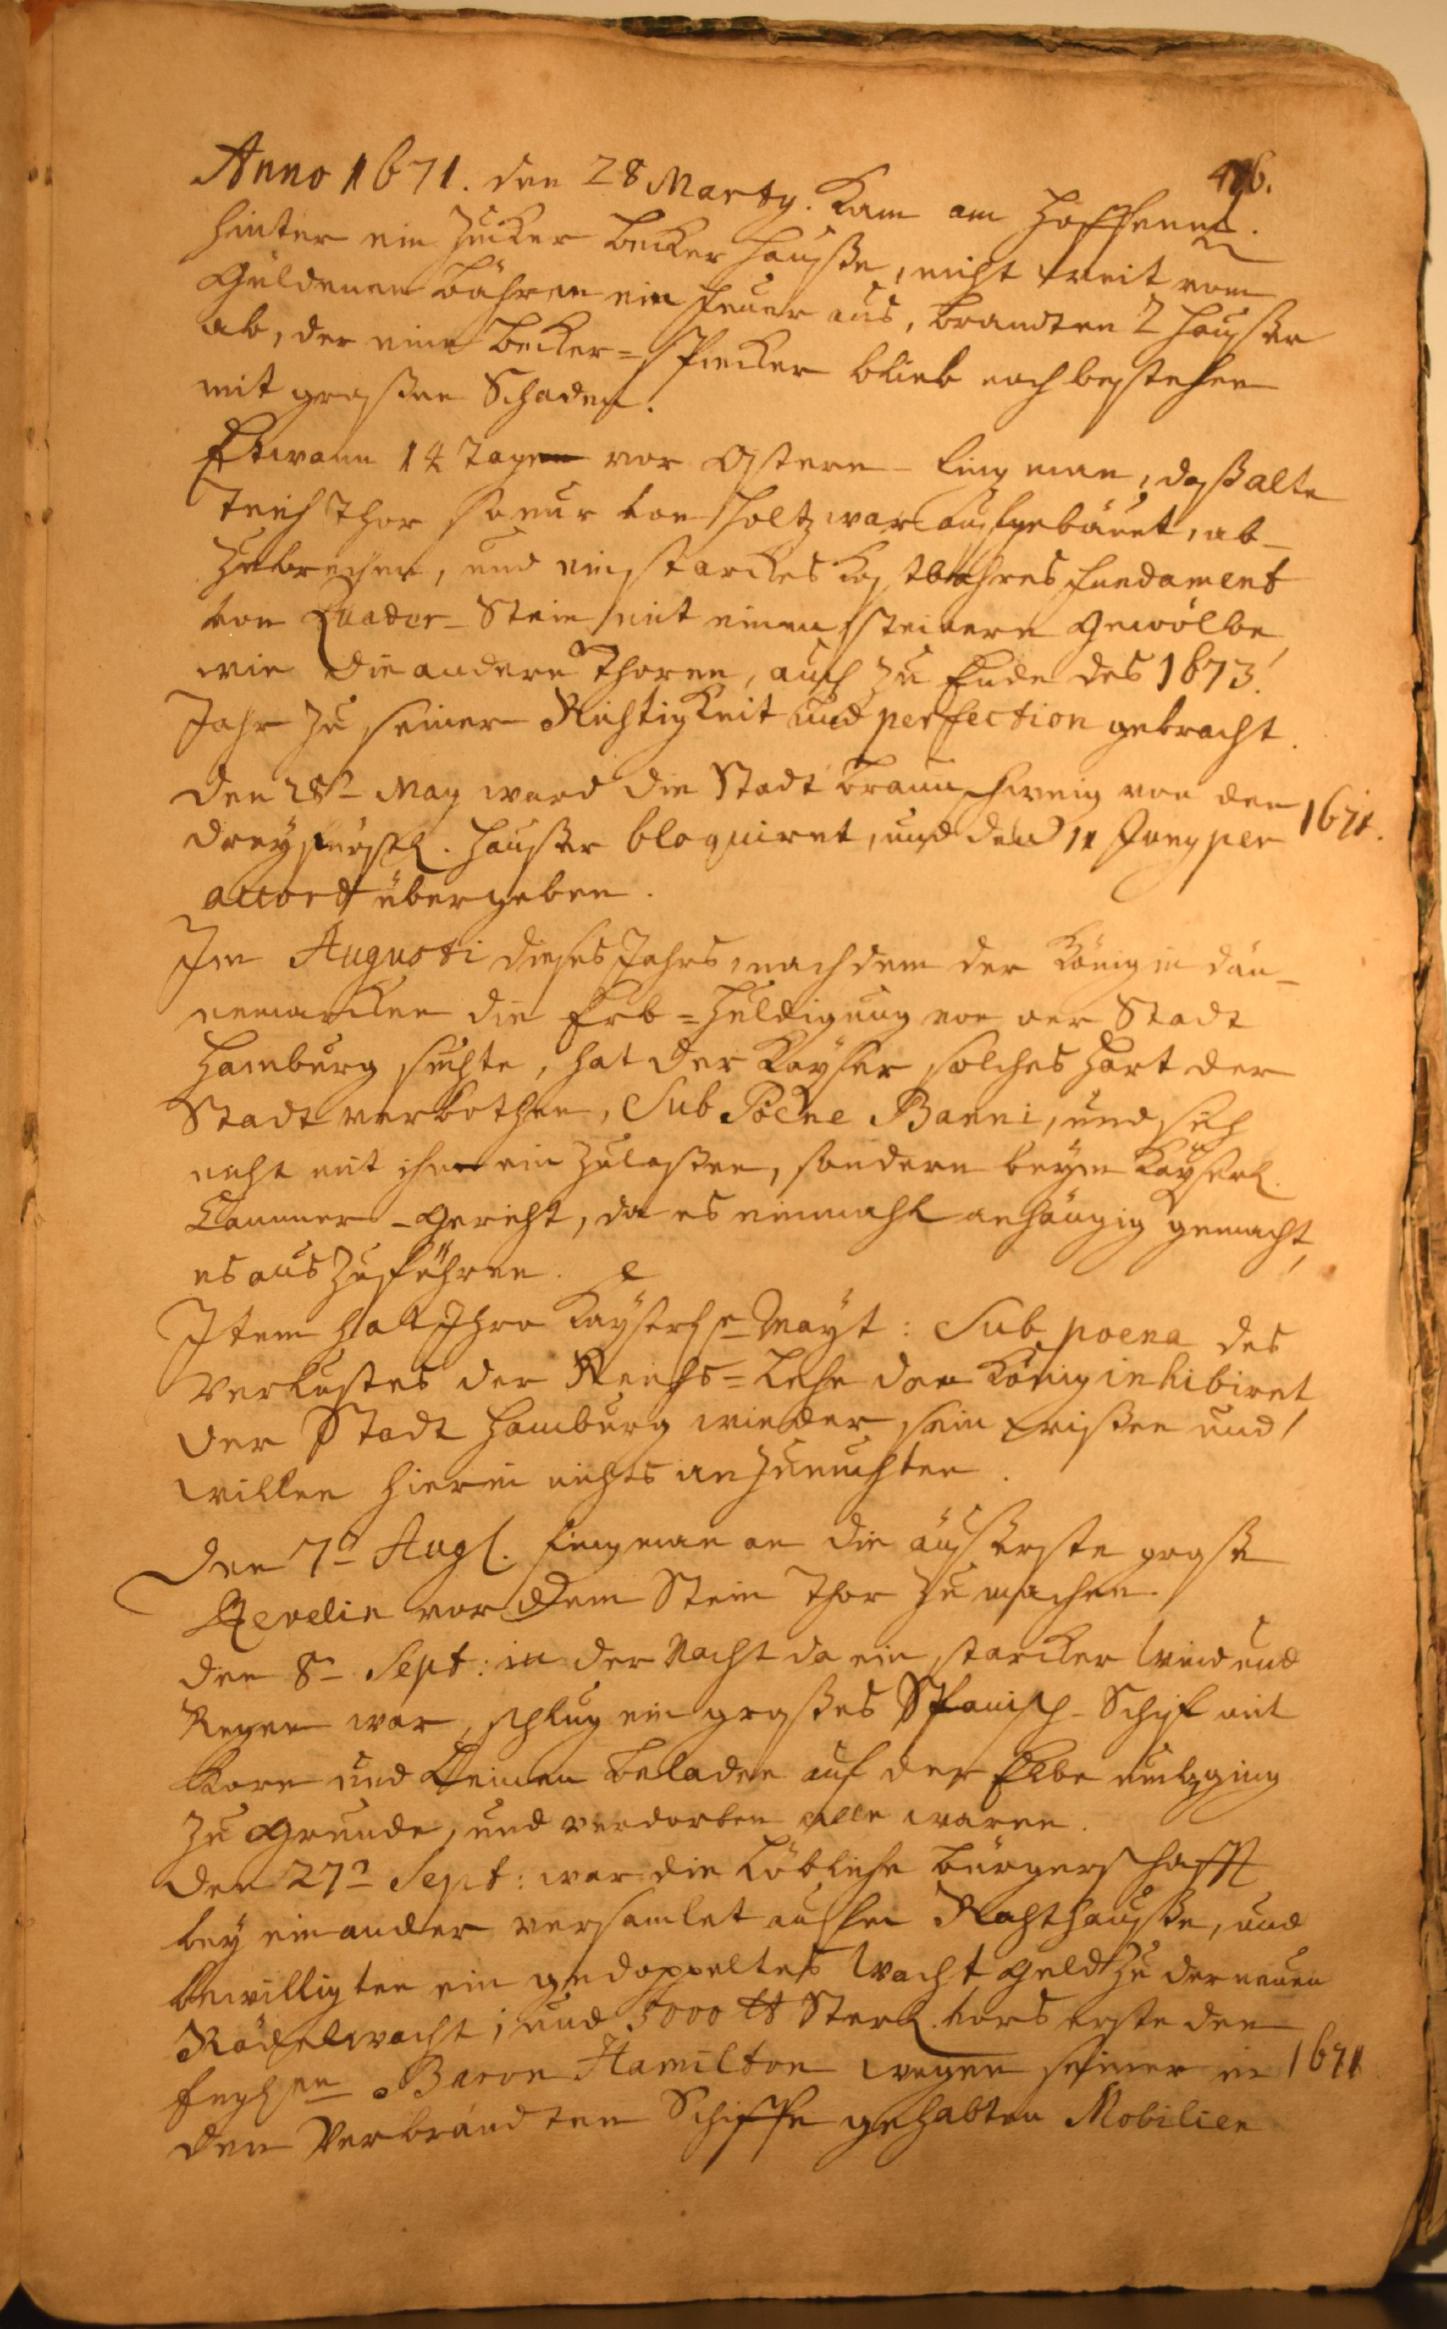 476.
Anno 1671. den 28 Marty. Kam am Hopffenm.
hinter ein Zucker Becker Hauße, nicht weit vom
Güldenen Bähren ein Feuer aus, brandten 2 Häußer
ab, der eine Becker=Speicker blieb noch bestehen
mit großen Schaden.
Etwann 14 Tage vor Ostern fing man, daß alte
Teich Thor so nur von Holtz war aufgebäuet, ab-
zubrechen, und ein starckes kostbahres Fundament
von Quader-Stein mit einem steinern Gewölbe
wie die andern Thoren, auch zu Ende des 1673.
Jahr zu seiner Richtigkeit und perfection gebracht.
Den 28n May ward die Stadt Braunschweig von den
drey fürstl. Häußer bloquiret, und den 11 Juny per
1671.
accort übergeben.
Im Augusti dieses Jahrs, nachdem der König in Dän-
nemarcken die Erb=Huldigung von der Stadt
Hamburg suchte, hat der Kayser solches hart der
Stadt verbothen, Sub Poene Banni, und sich
nicht mit ihm ein zulaßen, sondern beym Kayserl.
Cammer-Gericht, da es einmahl anhängig gemacht,
es aus zuführen.
Item hat Ihro Kayserlse Mayt: Sub poena des
Verlustes der Reichs=Lehn den König inhibiret
der Stadt Hamburg wieder sein Wißen und
willen hierin nichts anzumuhten.
Den 7n Augl. fing man an die äußerste große
Revelin vor dem Stein Thor zu machen.
Den 8n Sept: in der Nacht da ein starcker Wind und
Regen war, schlug ein großes Spanisch-Schif mit
Korn und Leinen beladen auf der Elbe um, ging
zu Grunde, und verdorben alle waren.
Den 27n Sept: war die Löbliche Bürgerschafft
bey einander versamlet auffen Rahthauße, und
bewilligten ein gedoppeltes Wacht Geld zu der neuen
Rödelwacht; und 5000 ℔ Sterl. vors erste den
Englsen Baron Hamilton wegen seiner in
1671
den Verbrandten Schiffe gehabten Mobilien